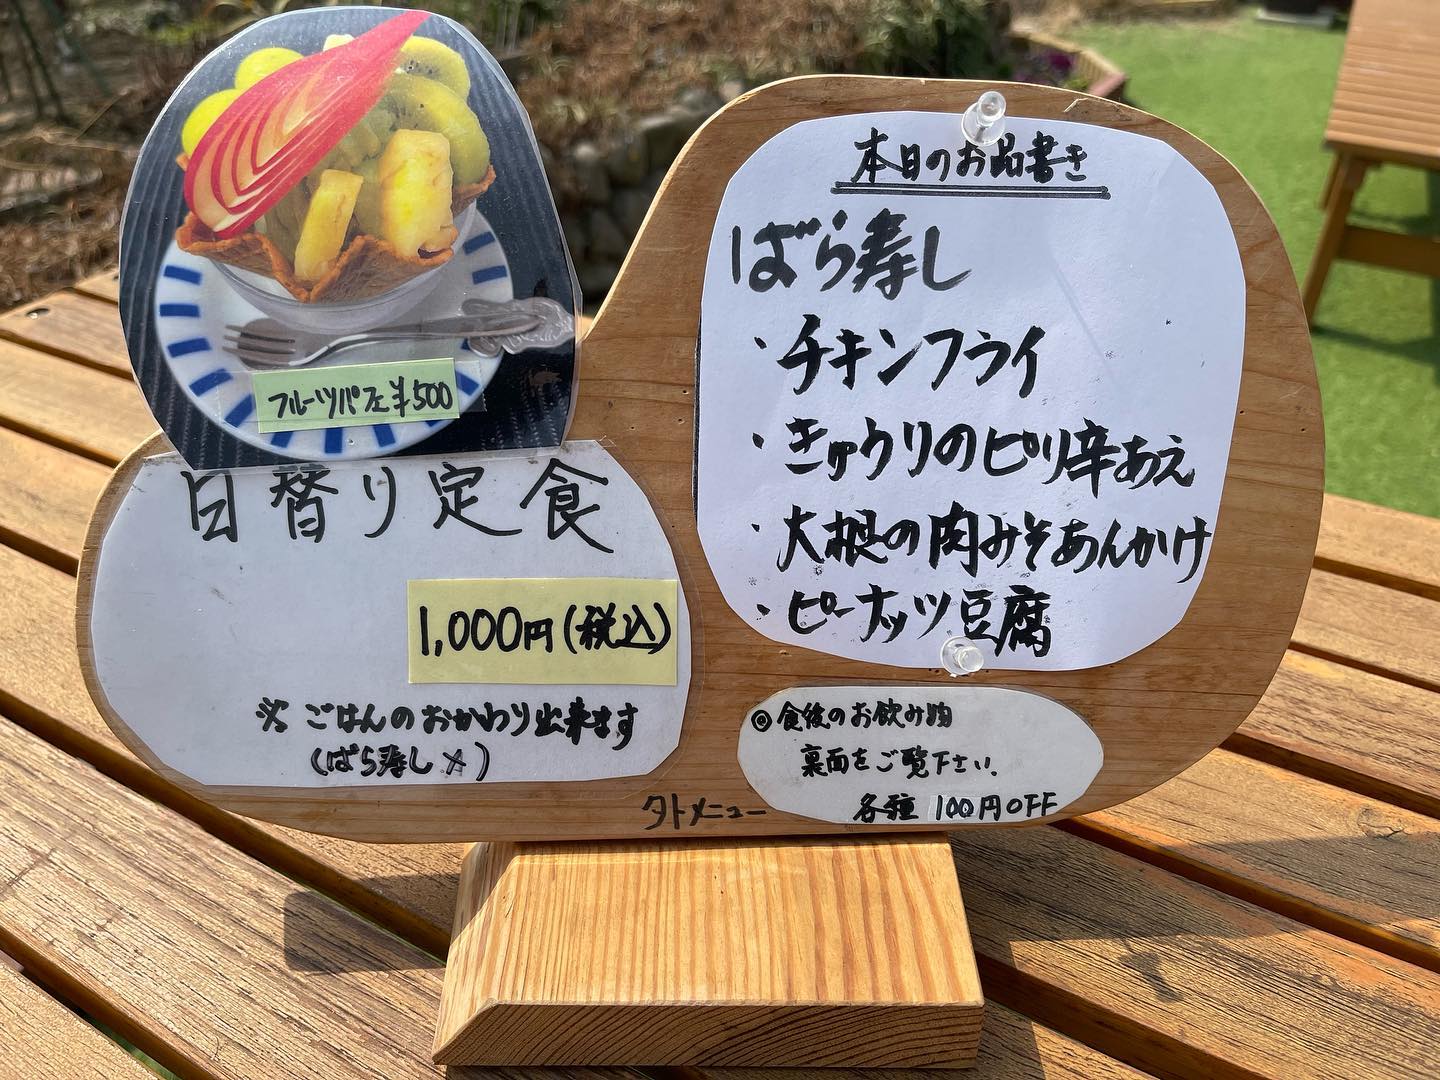 フルーツパフェ¥500
日替り定食
1,000円(税込)
※ごはんのおかわり出来ます
(ばら寿し×)
本日のお品書き
ばら寿し
・チキンフライ
・きゅうりのピリ辛あえ
・大根の肉みそあんかけ
・ピーナッツ豆腐
◎食後のお飲み物
裏面をご覧下さい.
各種 100円OFF
外メニュー